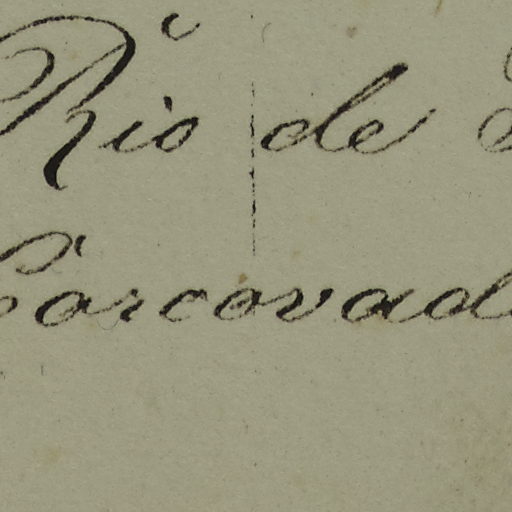 Rio de
Corcovad